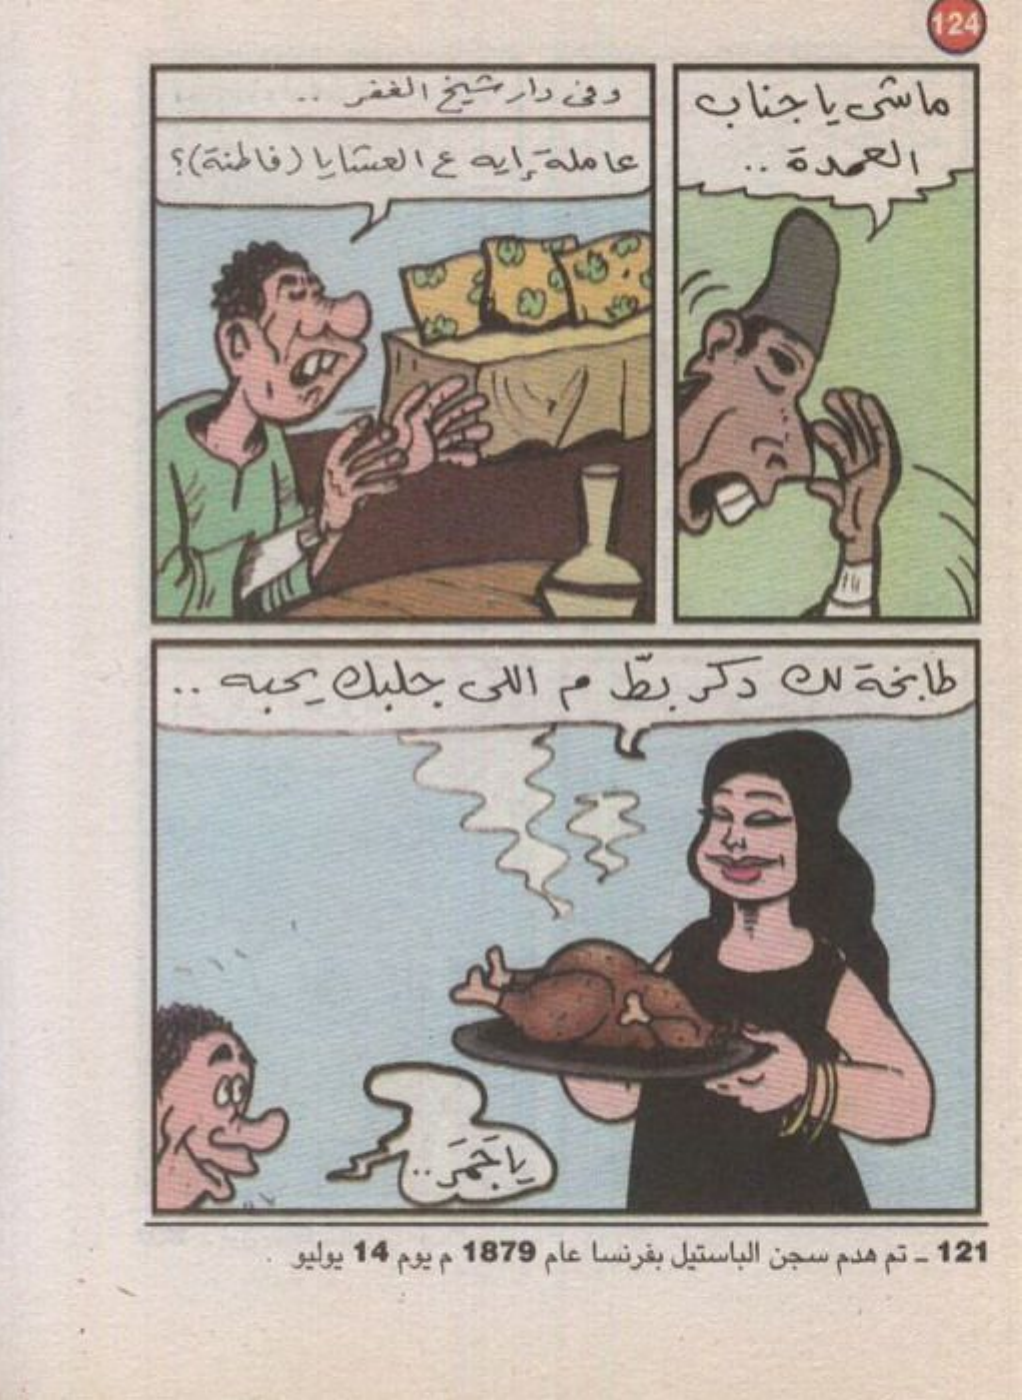 124
ماشى يا جناب
العمدة ..
وفى دار شيخ الغفر ..
عاملة إيه ع العشا يا (فاطنة)؟
طابخة لك دكر بطّ م اللى جلبك يحبه ..
يا جَمَر ..
121 ـ تم هدم سجن الباستيل بفرنسا عام 1879 م يوم 14 يوليو .